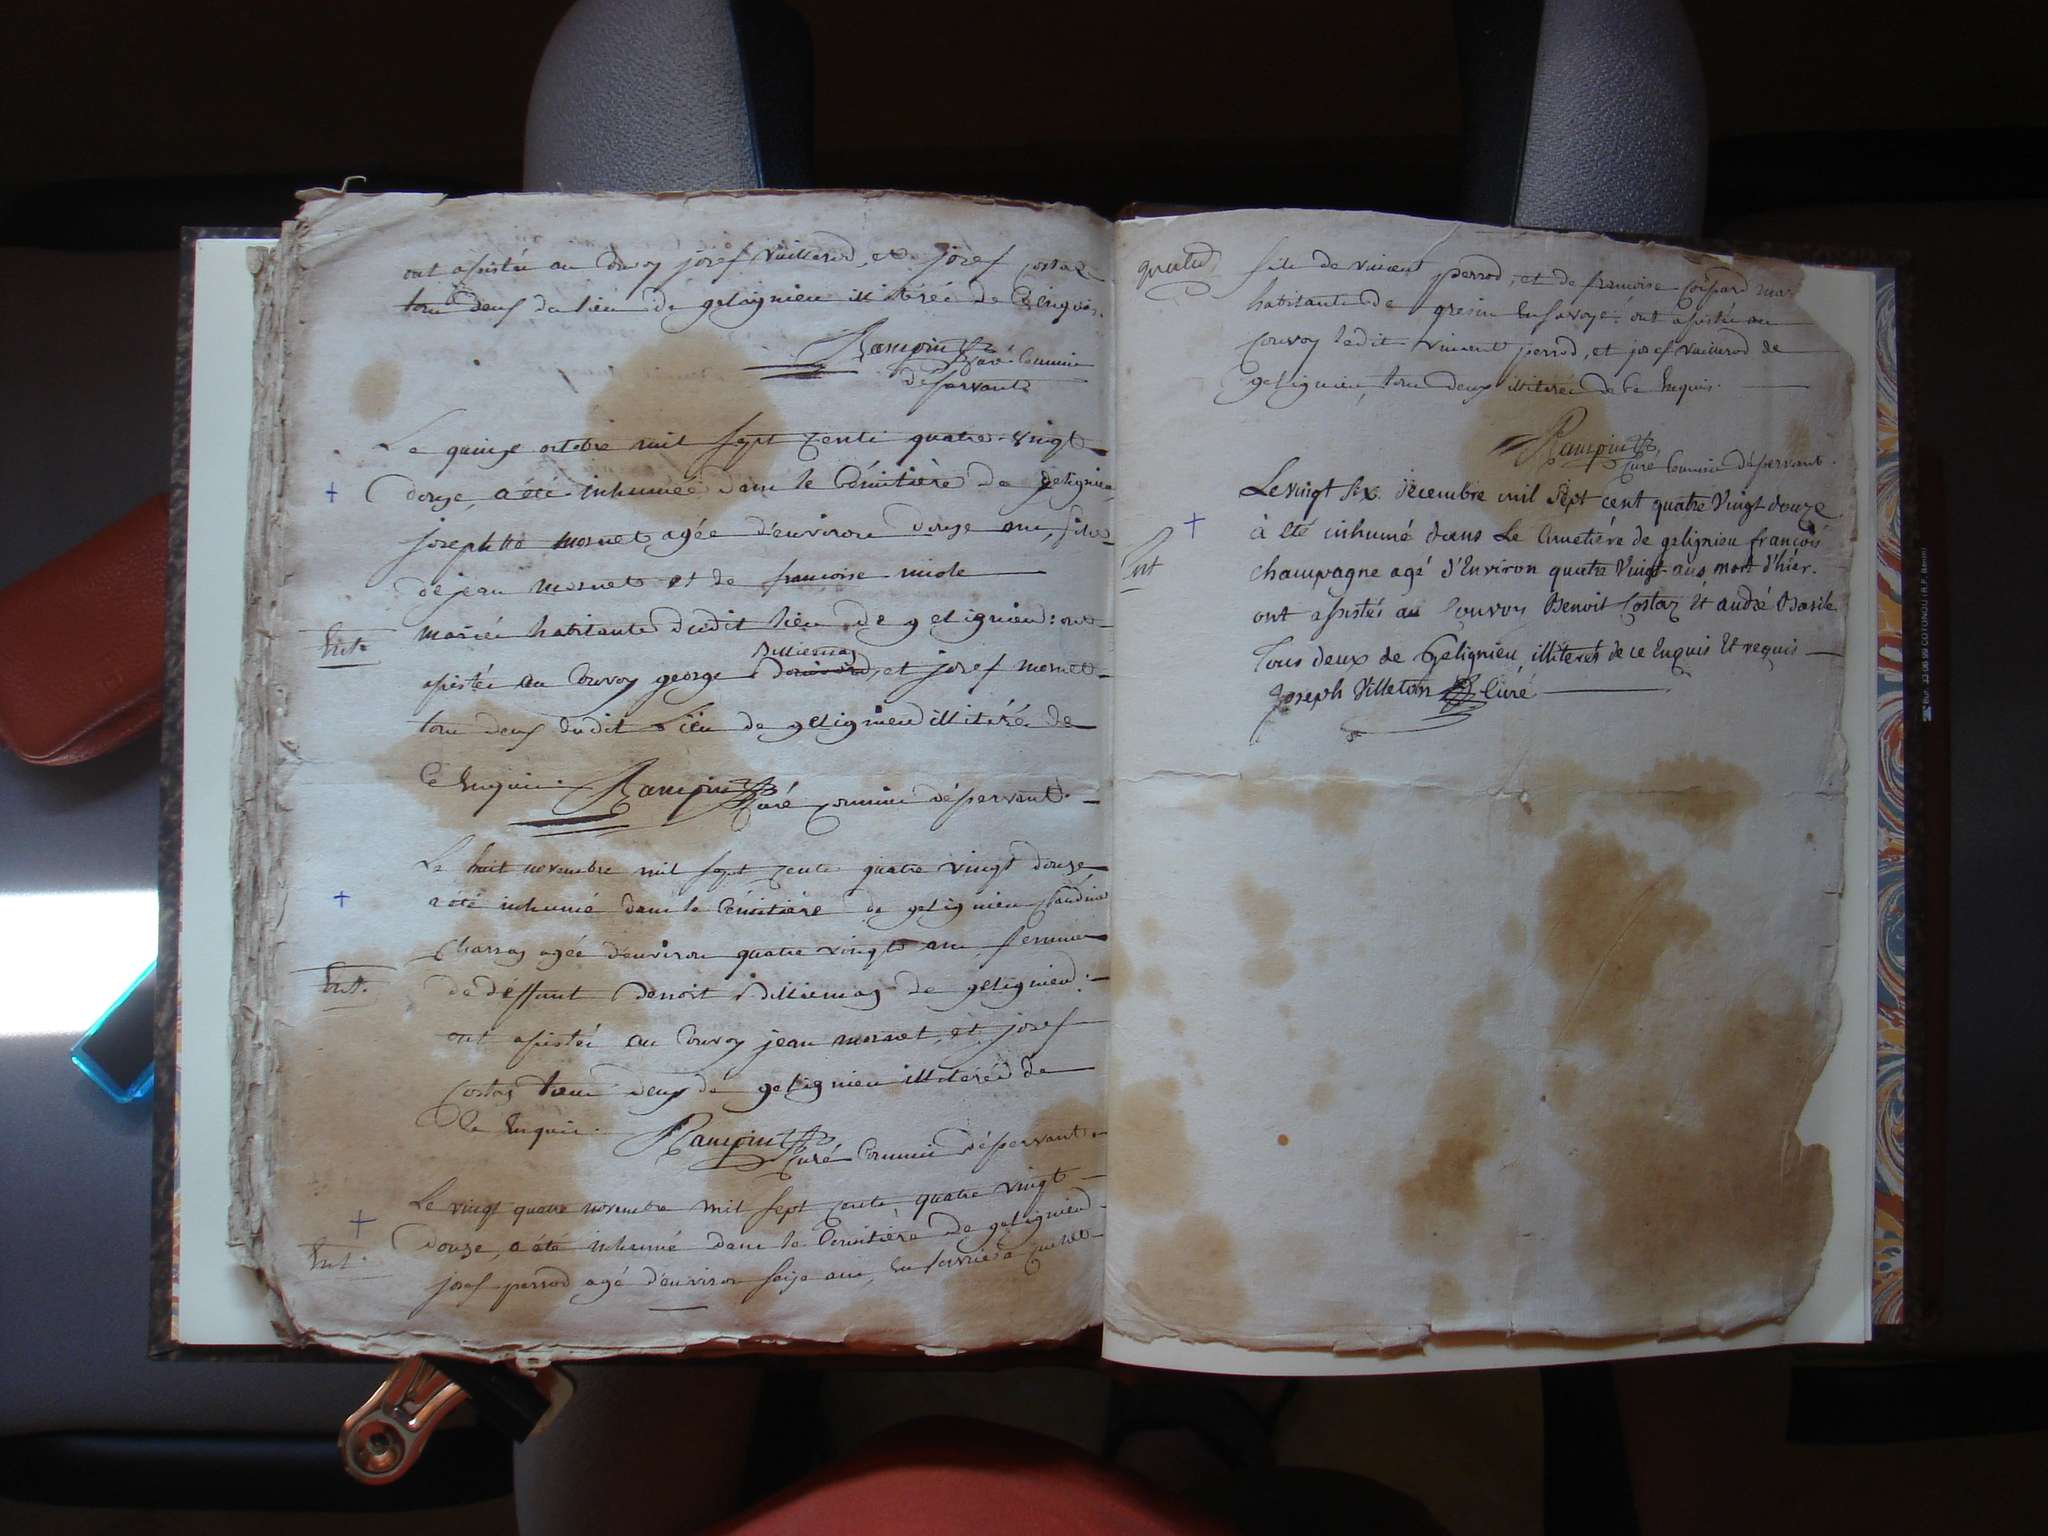 ont assistée au Convoy josef Vuillerod, et josef costaz
tous deux du lieu de gelignieu illitérés de ce Enquis.
Rampin
Curé Commis
désservant
Le quinze octobre mil sept cents quatre-vingt
douze, a été inhumée dans le Cémitière de gelignieu
josephte mornet agée d'environ douze ans, fille
de jean mornet et de francoise miole
Ent.
mariés habitants dudit lieu de gelignieu: ont
Billiemaz
assistée au Convoy george et josef mornet
tous deux dudit Lieu de gelignieu illitérés de
Ce Enquis. Rampin Curé Commis désservant.
Le huit novembre mil sept cents quatre vingt douze
a été inhumé dans le Cémitière de gelignieu Claudine
Charras agée d'environ quatre vingts ans femme
Ent.
de deffunt Benoit Billiemaz de gelignieu:
ont assistés au Convoy jean mornet, et josef
Costaz tous deux de gelignieu illitérés de
Ce Enquis. Rampin
Curé Commis désservant.
Le vingt quatre novembre mil sept cents quatre vingt
douze, a été inhumé dans le Cémitière de gelignieu
Ent.
josef perrod agé d'environ seize ans, En service
fils de vincent perrod, et de francoise
habitants de gresin En savoye: ont assistés au
Convoy ledit vincent perrod, et josef Vuillerod de
gelignieu, tous deux illitérés de Ce Enquis.
Rampin
Curé Commis désservant.
Le vingt six décembre mil sept cent quatre Vingt douze
à été inhumé dans Le Cimetière de gelignieu françois
Ent
champagne agé d'Environ quatre Vingt ans, mort d'hièr.
ont assistés au Convoy Benoit Costaz Et andré Basile
Tous deux de Gelignieu, illiterés de ce Enquis Et requis
Joseph Villeton Curé